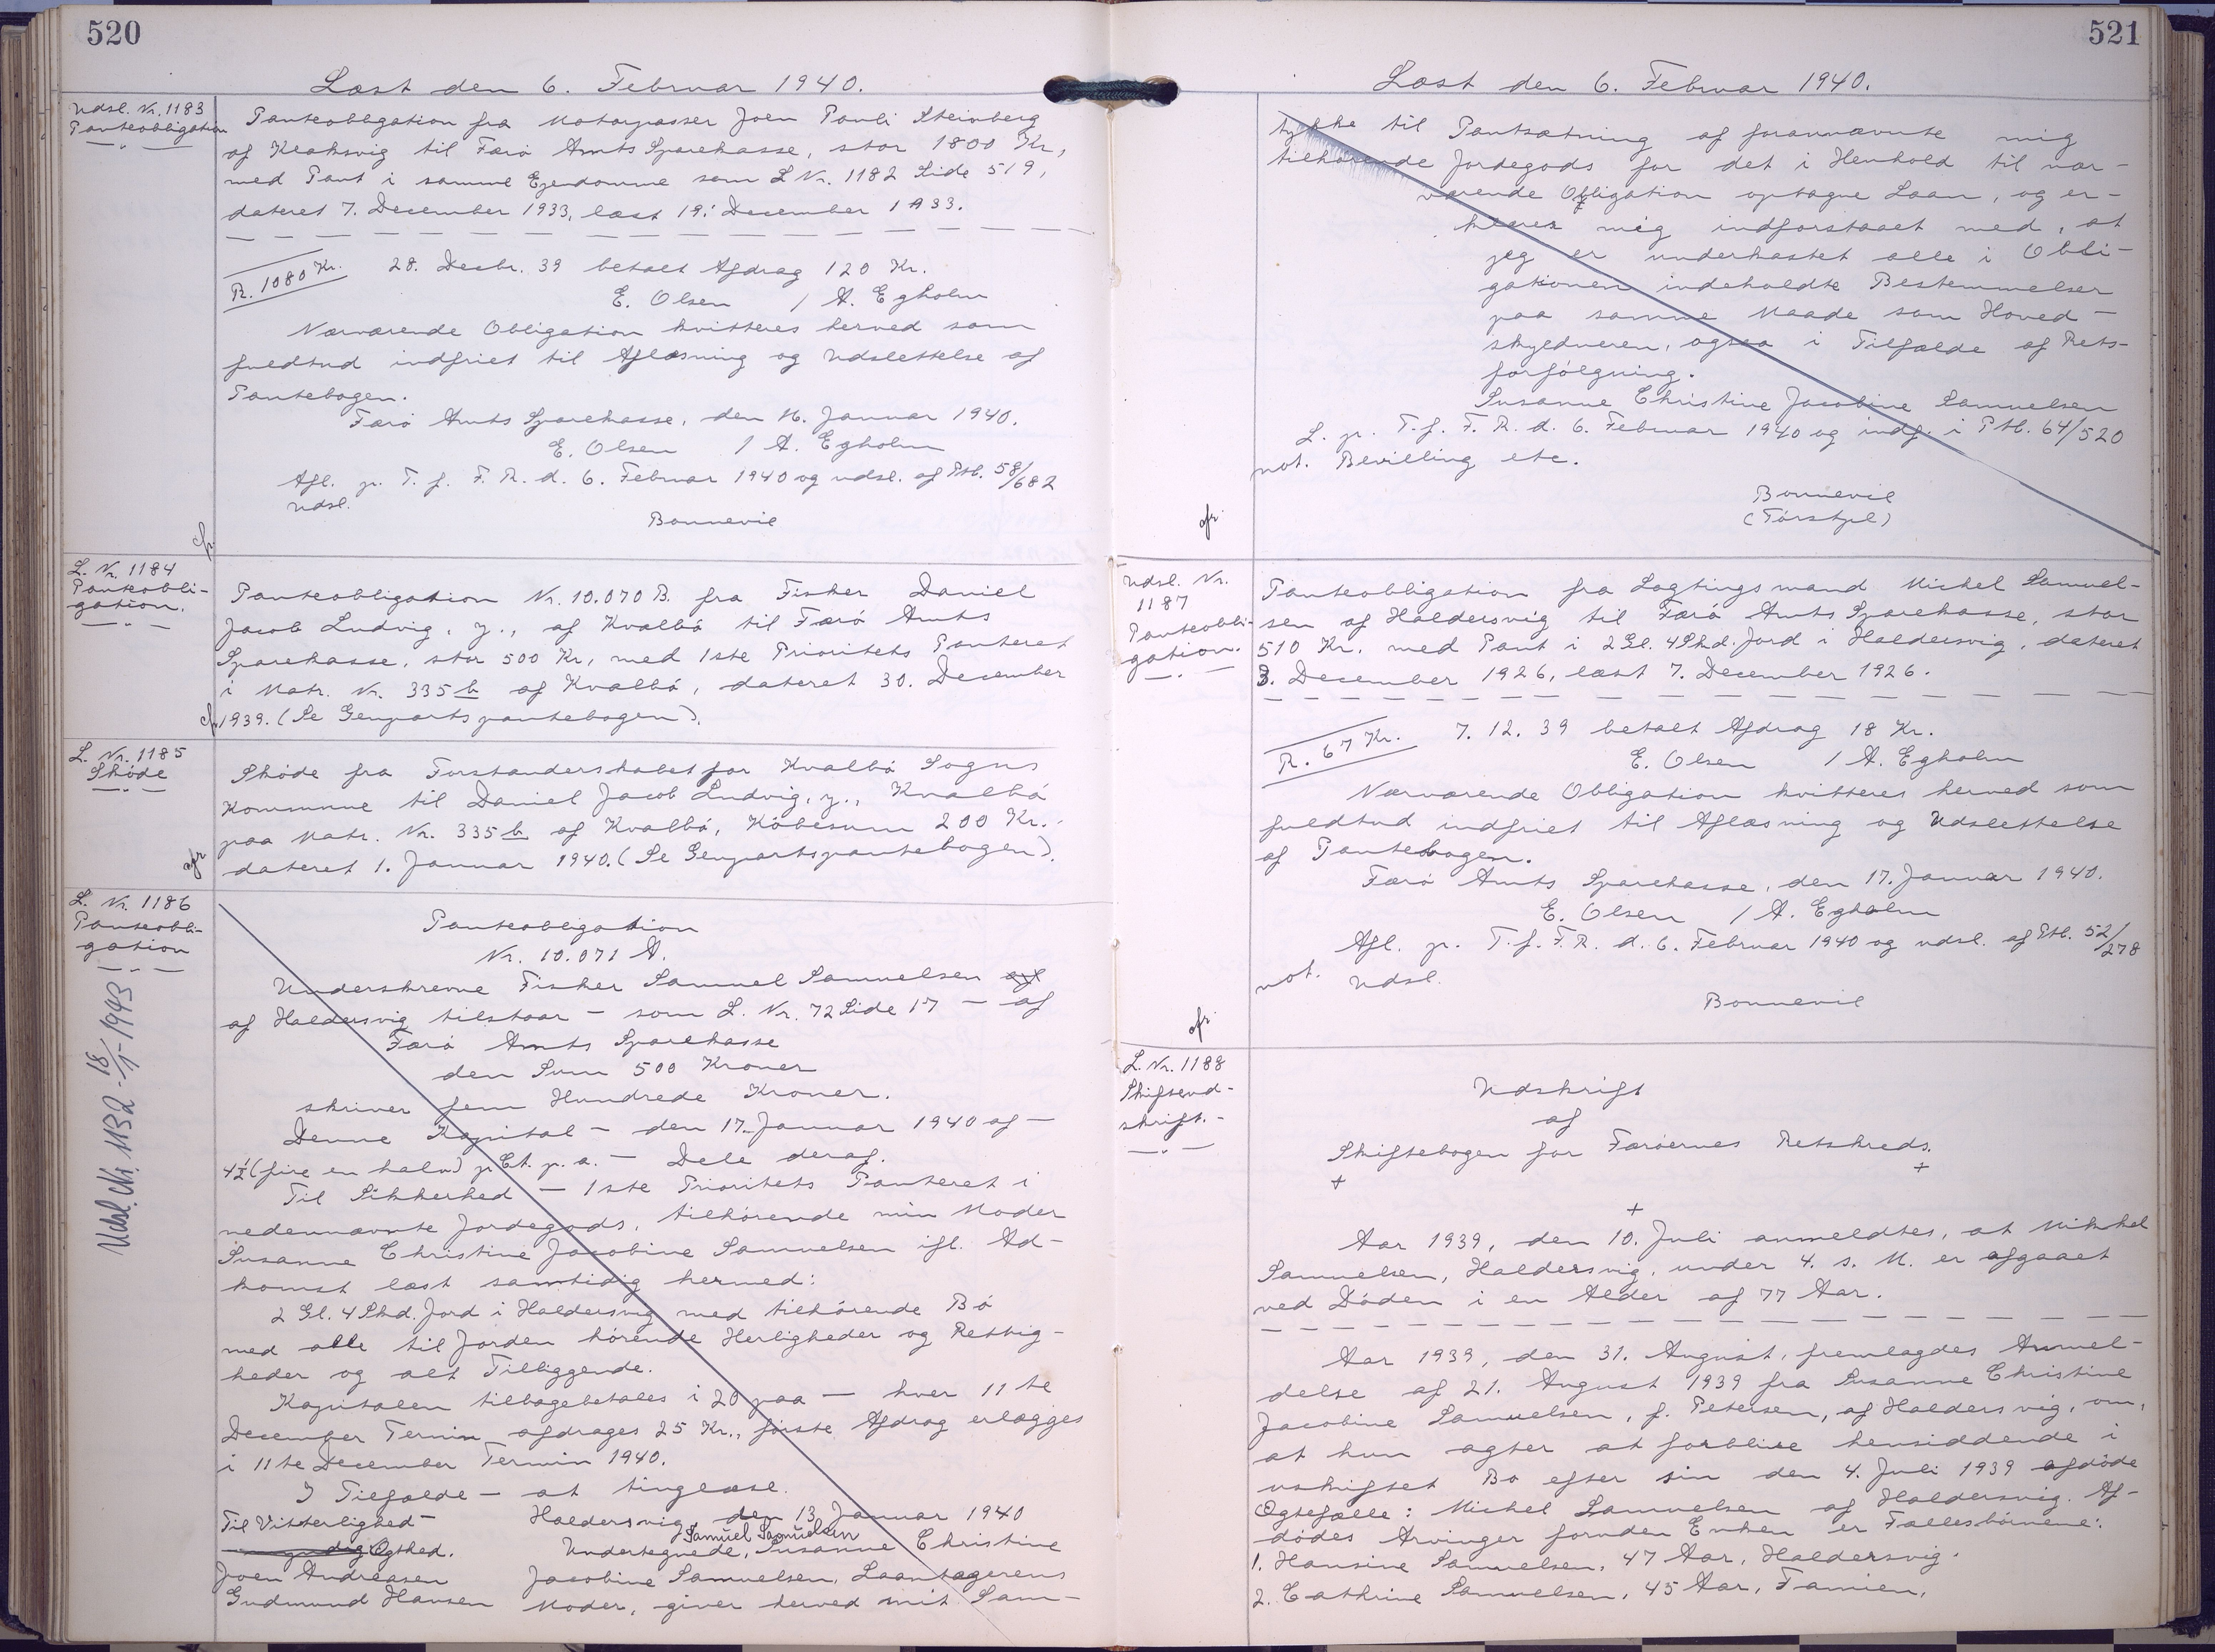 520
Læst den 6. Februar 1940.
Udsl. Nr. 1183
Panteobligation
Panteobligation fra Motorpasser Joen Pauli Steinberg
af Klaksvig til Færö Amts Sparekasse, stor 1800 Kr,
med Pant i samme Ejendomme som L Nr. 1182 Side 519,
dateret 7. December 1933, læst 19. December 1933.
R. 1080 Kr. 28. Decbr. 39 betalt Afdrag 120 Kr.
E. Olsen / A. Egholm
Nærværende Obligation kvitteres herved som
fuldtud indfriet til Aflæsning og Udslettelse af
Pantebogen.
Færö Amts Sparekasse, den 16. Januar 1940.
E. Olsen / A. Egholm
Afl. p. T. f. F. R. d. 6. Februar 1940 og udsl. af Ptb. 58/682
Udsl.
Bonnevie
cfr.
L. Nr. 1184
Panteobli-
gation.
Panteobligation Nr. 10.070 B. fra Fisker Daniel
Jacob Ludvig, y., af Kvalbö til Færö Amts
Sparekasse, stor 500 Kr, med 1ste Prioritets Panteret
i Matr. Nr. 335 b af Kvalbö, dateret 30. December
cfr. 1939. (Se Genpartspantebogen).
L. Nr. 1185
Sköde
Sköde fra Forstanderskabet for Kvalbö Sogns
Kommune til Daniel Jacob Ludvig, y., Kvalbö
paa Matr. Nr. 335 b af Kvalbö, Köbesum 200 Kr.
dateret 1. Januar 1940. (Se Genpartspantebogen).
cfr
L. Nr. 1186
Panteobli-
gation
Udsl. Nr. 1132 - 18/1-1943
Panteobligation
Nr. 10.071 A.
Underskrevne Fisker Samuel Samuelsen af
af Haldersvig tilstaar – som L. Nr. 72 Side 17 – af
Færö Amts Sparekasse
den Sum 500 Kroner
skriver fem Hundrede Kroner.
Denne Kapital – den 17. Januar 1940 af –
4½ (fire en halv) pCt. p. a. – Dele deraf.
Til Sikkerhed – 1ste Prioritets Panteret i
nedennævnte Jordegods, tilhörende min Moder
Susanne Christine Jacobine Samuelsen ifl. Ad-
komst læst samtidig hermed:
2 Gl. 4 Skd. Jord i Haldersvig med tilhörende Bö
med alle til Jorden hörende Herligheder og Rettig-
heder og alt Tilliggende.
Kapitalen tilbagebetales i 20 paa – hver 11te
December Termin afdrages 25 Kr., förste Afdrag erlægges
i 11te December Termin 1940.
I Tilfælde – at tinglæse.
Til Vitterlighed – Haldersvig den 13 Januar 1940
Samuel Samuelsen
Ægthed. Undertegnede, Susanne Christine
Joen Andreasen Jacobine Samuelsen, Laantagerens
Gudmund Hansen Moder, giver herved mit Sam-
521
Læst den 6. Februar 1940.
tykke til Pantsætning af forannævnte mig
tilhörende Jordegods for det i Henhold til nær-
værende Obligation optagne Laan, og er-
klærer mig indforstaaet med, at
jeg er underkastet alle i Obli-
gationen indeholdte Bestemmelser
paa samme Maade som Hoved-
skyldneren, ogsaa i Tilfælde af Rets-
forfölgning.
Susanne Christine Jacobine Samuelsen
L. p. T. f. F. R. d. 6. Februar 1940 og indf. i Ptb. 64/520
not. Bevilling etc.
Bonnevie
(Törstpl)
cfr.
Udsl. Nr.
1187
Panteobli-
gation.
Panteobligation fra Lagtingsmand Mickel Samuel-
sen af Haldersvig til Færö Amts Sparekasse, stor
510 Kr. med Pant i 2 Gl. 4 Skd. Jord i Haldersvig, dateret
3. December 1926, læst 7. December 1926.
R. 67 Kr. 7. 12. 39 betalt Afdrag 18 Kr.
E. Olsen / A. Egholm
Nærværende Obligation kvitteres herved som
fuldtud indfriet til Aflæsning og Udslettelse
af Pantebogen.
Færö Amts Sparekasse, den 17. Januar 1940.
E. Olsen / A. Egholm
Afl. p. T. f. F. R. d. 6. Februar 1940 og udsl. af Ptb. 52/278
not. Udsl.
Bonnevie
cfr.
L. Nr. 1188
Skifteud-
skrift.-
Udskrift
af
Skiftebogen for Færöernes Retskreds.
+ + +
Aar 1939, den 10. Juli anmeldtes, at Mikkel
Samuelsen, Haldersvig, under 4. s. M. er afgaaet
ved Döden i en Alder af 77 Aar.
Aar 1939, den 31. August, fremlagdes Anmel-
delse af 21. August 1939 fra Susanne Christine
Jacobine Samuelsen, f. Petersen, af Haldersvig, om,
at hun agter at forblive hensiddende i
uskiftet Bo efter sin den 4. Juli 1939 afdöde
Ægtefælle: Mickel Samuelsen af Haldersvig. Af-
dödes Arvinger foruden Enken er Fællesbörnene:
1. Hansine Samuelsen, 47 Aar, Haldersvig.
2. Cathrine Samuelsen, 45 Aar, Famien,